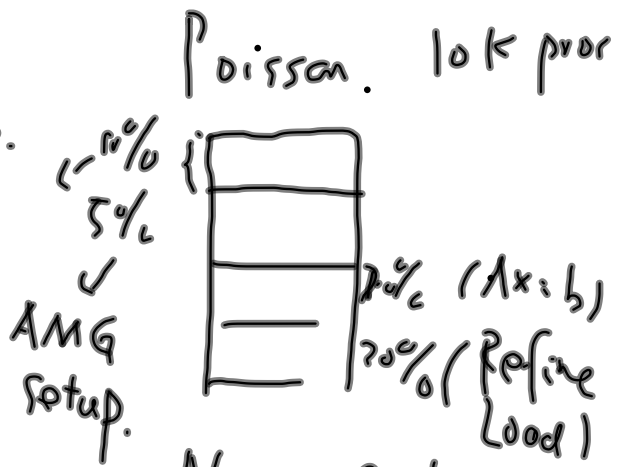 Poisson. 10k proc
10%
5%
AMG
Setup.
(Ax=b)
20% (Refine
Load)